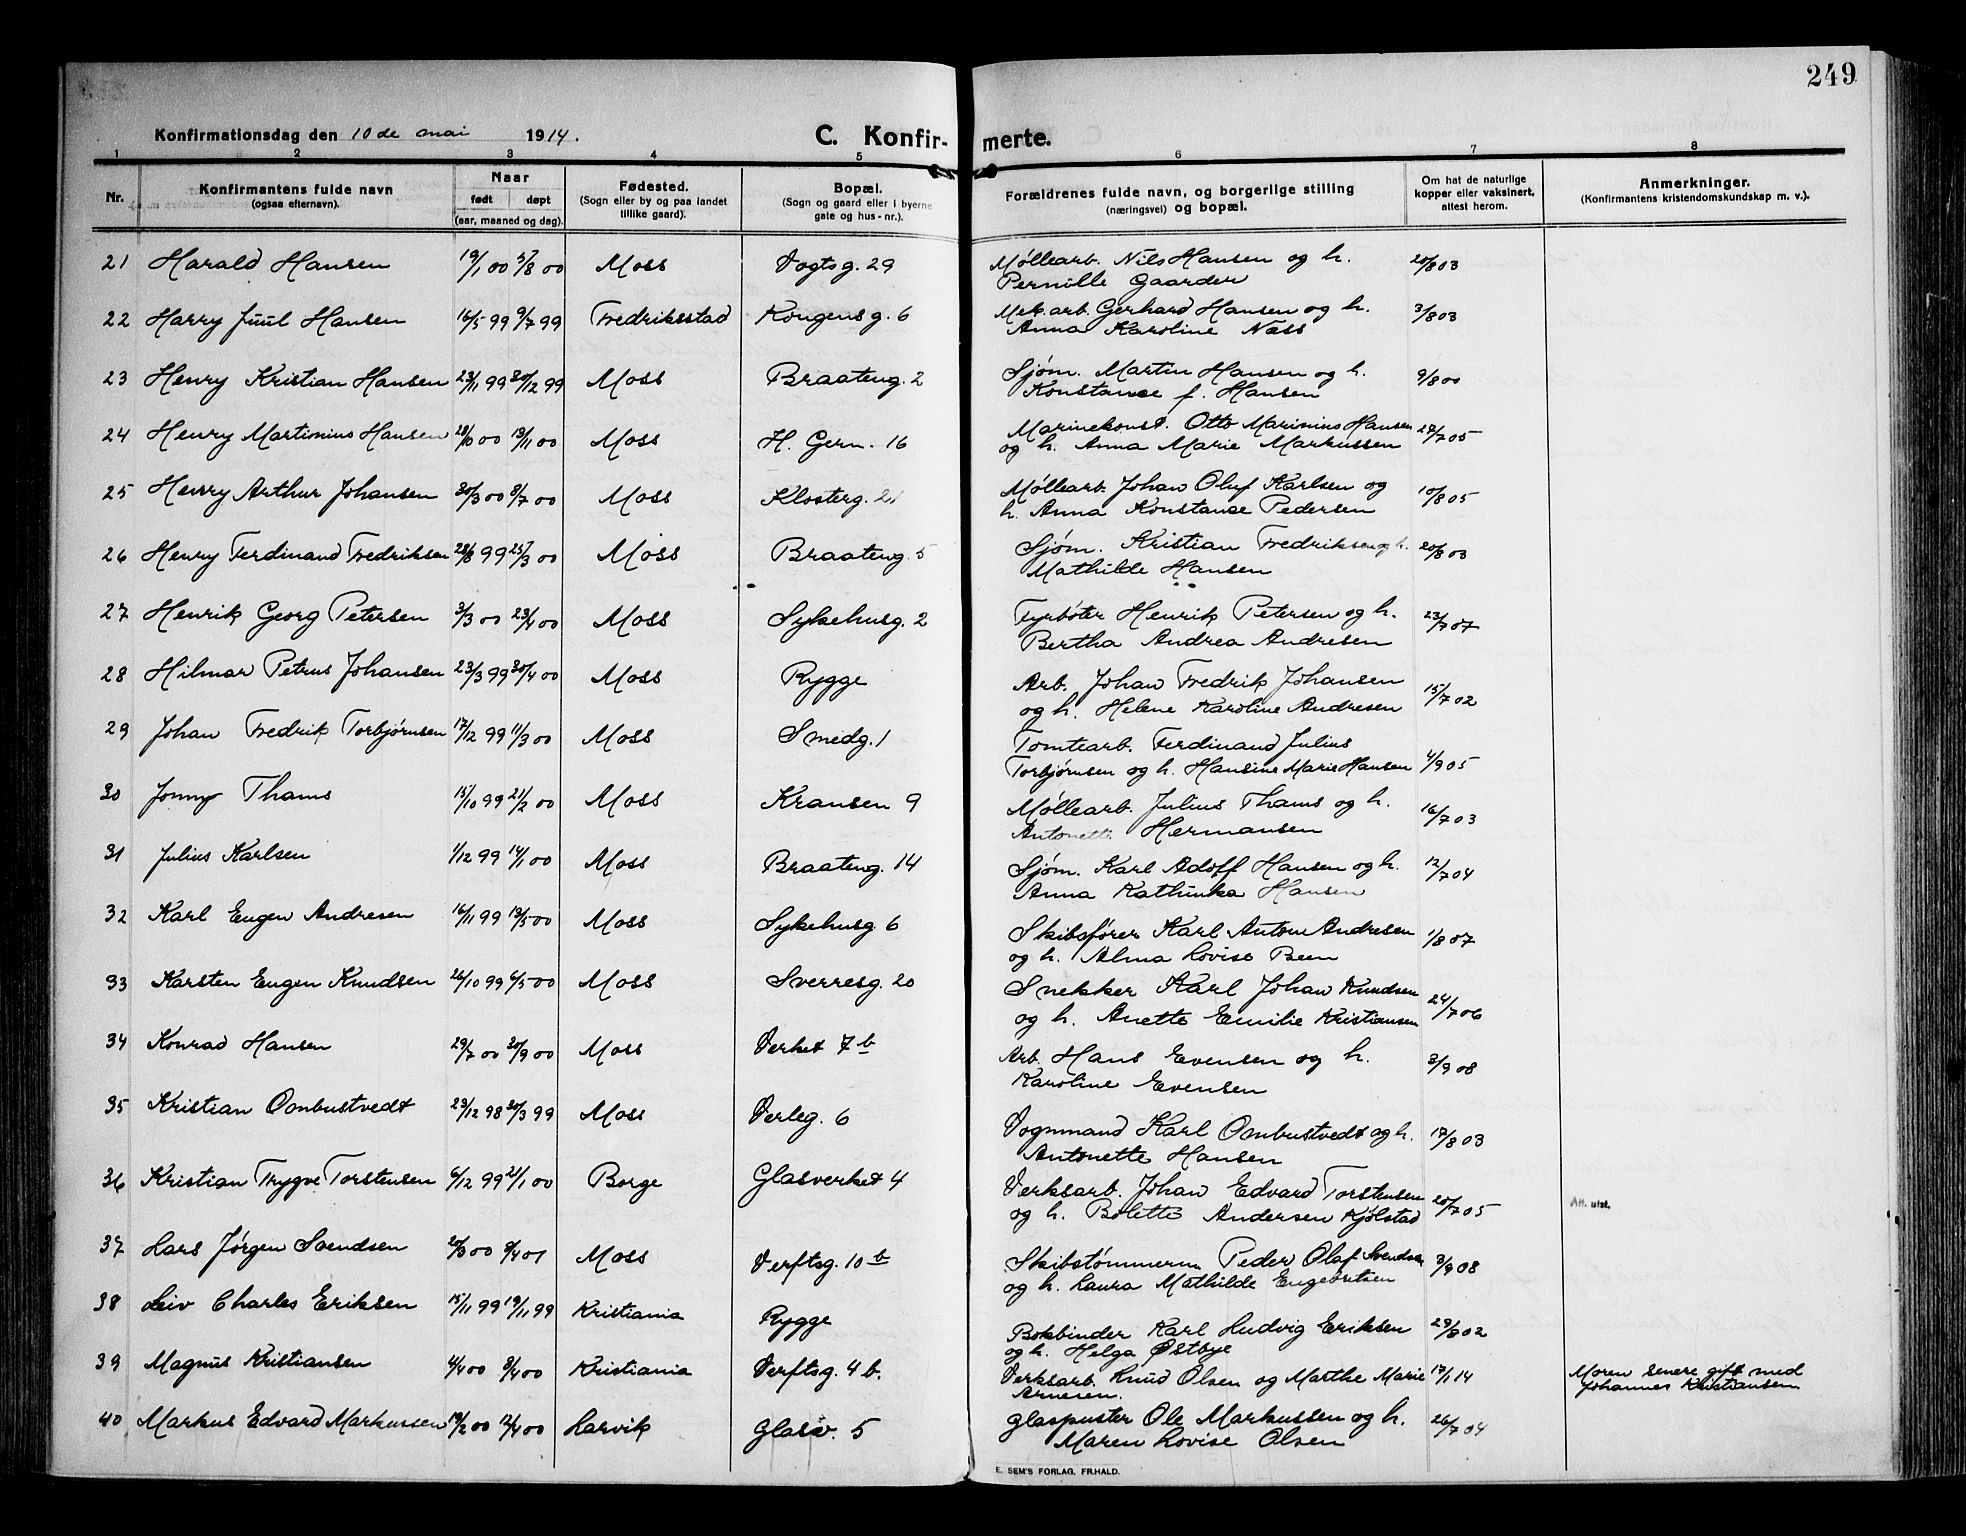 249
Konfirmationsdag den 10 de mai 1914.
C. Konfir- merte.
1 2 3 4 5 6 7 8
Nr.
Konfirmantens fulde navn
(ogsaa efternavn).
Naar
født døpt
(aar, maaned og dag).
Fødested.
(Sogn eller by og paa landet
tillike gaard).
Bopæl.
(Sogn og gaard eller i byerne
gate og hus-nr.).
Forældrenes fulde navn, og borgerlige stilling
(næringsvei) og bopæl.
Om hat de naturlige
kopper eller vaksinert,
attest herom.
Anmerkninger.
(Konfirmantens kristendomskundskap m. v.).
21 Harald Hansen 19/1 00 5/8 00 Moss Vogtsg. 29 Møllearb. Nils Hansen og h. 20/8 03
Pernille Gaarder
22 Harry Juul Hansen 16/5 99 9/7 99 Fredriksstad Kongensg. 6 Mek. arb. Gerhard Hansen og h. 3/8 03
Anna Karoline Næss
23 Henry Kristian Hansen 23/11 99 30/12 99 Moss Braateng. 2 Sjøm. Martin Hansen og h. 9/8 00
Konstance f. Hansen
24 Henry Martinius Hansen 28/10 00 13/11 00 Moss H. Gern. 16 Marinekonst. Otto Marinius Hansen 27/7 05
og h. Anna Marie Markussen
25 Henry Arthur Johansen 30/3 00 8/7 00 Moss Klosterg. 21 Møllearb. Johan Oluf Karlsen og 10/8 05
h. Anna Konstance Pedersen
26 Henry Ferdinand Fredriksen 28/8 99 25/3 00 Moss Braateng. 5 Sjøm. Kristian Fredriksen og h. 20/8 03
Mathilde Hansen
27 Henrik Georg Petersen 3/3 00 23/4 00 Moss Sykehusg. 2 Fyrbøter Henrik Petersen og h. 23/7 07
Bertha Andrea Andresen
28 Hilmar Petrus Johansen 23/3 99 30/4 00 Moss Rygge Arb. Johan Fredrik Johansen 15/7 02
og h. Helene Karoline Andresen
29 Johan Fredrik Torbjørnsen 17/12 99 11/3 00 Moss Smedg. 1 Tomtearb. Ferdinand Julius
Torbjørnsen og h. Hansine Marie Hansen 4/9 05
30 Jonny Thams 15/10 99 21/2 00 Moss Kransen 9 Møllearb. Julius Thams og h. 16/7 03
Antonette Hermansen
31 Julius Karlsen 1/12 99 14/1 00 Moss Braateng. 14 Sjøm. Karl Adolf Hansen og h. 12/7 04
Anna Kathinka Hansen
32 Karl Eugen Andresen 16/11 99 13/5 00 Moss Sykehusg. 6 Skibsfører Karl Anton Andresen 1/8 07
og h. Alma Lovise Been
33 Karsten Eugen Knudsen 26/10 99 6/5 00 Moss Sverresg. 20 Snekker Karl Johan Knudsen 24/7 06
og h. Anette Emilie Kristiansen
34 Konrad Hansen 29/7 00 30/9 00 Moss Verket 7 b Arb. Hans Evensen og h. 3/9 08
Karoline Evensen
35 Kristian Ombustvedt 23/12 98 30/3 99 Moss Verleg. 6 Vognmand Karl Ombustvedt og h. 17/8 03
Antonette Hansen
36 Kristian Trygve Torstensen 6/12 99 21/1 00 Borge Glasverket 4 Verksarb. Johan Edvard Torstensen 20/7 05 Att. utst.
og h. Bolette Andersen Kjølstad
37 Lars Jørgen Svendsen 20/3 00 8/4 01 Moss Verftsg. 10 b Skibstømmerm. Peder Olaf Svendsen 3/9 08
og h. Laura Mathilde Engebretsen
38 Leiv Charles Eriksen 15/11 99 19/11 99 Kristiania Rygge Bokbinder Karl Ludvig Eriksen 29/8 02
og h. Helga Østbye
39 Magnus Kristiansen 4/4 00 8/4 00 Kristiania Verftsg. 4 b. Verksarb. Knud Olsen og Marthe Marie 17/1 14 Moren senere gift med
Arnesen. Johannes Kristiansen
40 Markus Edvard Markussen 19/2 00 12/4 00 Larvik Glasv. 5 Glaspuster Ole Markussen og h. 26/7 04
Maren Lovise Olsen
E. SEM'S FORLAG. FR.HALD.